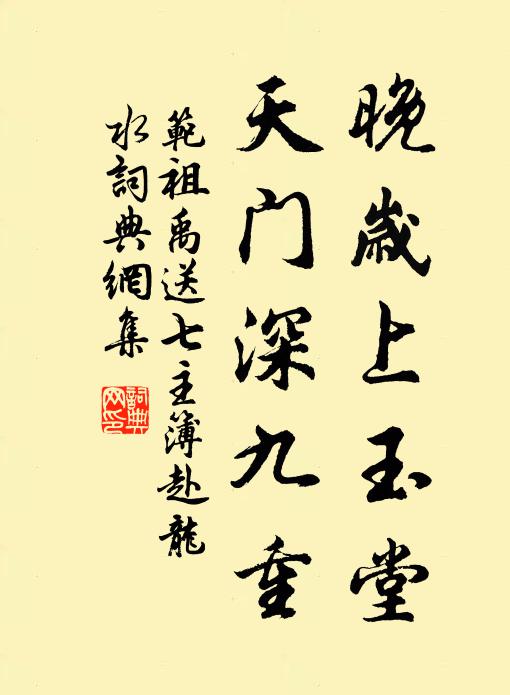 晚歲上玉堂
天门深九重
範祖禹送七主簿赴龍
水詞典網集
詞典网印